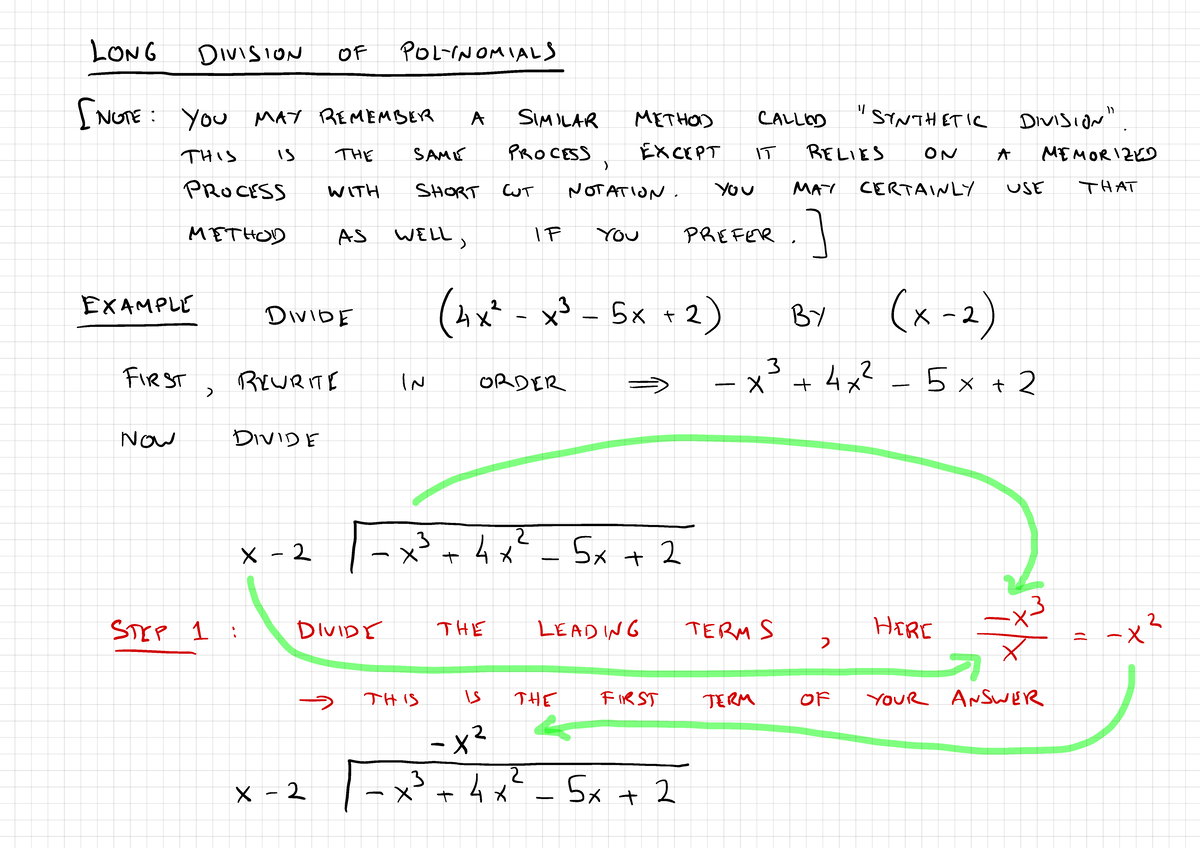 LONG DIVISION OF POLYNOMIALS
[NOTE: YOU MAY REMEMBER A SIMILAR METHOD CALLED "SYNTHETIC DIVISION".
THIS IS THE SAME PROCESS, EXCEPT IT RELIES ON A MEMORIZED
PROCESS WITH SHORT CUT NOTATION. YOU MAY CERTAINLY USE THAT
METHOD AS WELL, IF YOU PREFER.]
EXAMPLE DIVIDE (4x² - x³ - 5x + 2) BY (x - 2)
FIRST, REWRITE IN ORDER ⇒ - x³ + 4x² - 5x + 2
NOW DIVIDE
x - 2 | - x³ + 4x² - 5x + 2
STEP 1: DIVIDE THE LEADING TERMS, HERE -x³/x = -x²
→ THIS IS THE FIRST TERM OF YOUR ANSWER
- x²
x - 2 | - x³ + 4x² - 5x + 2